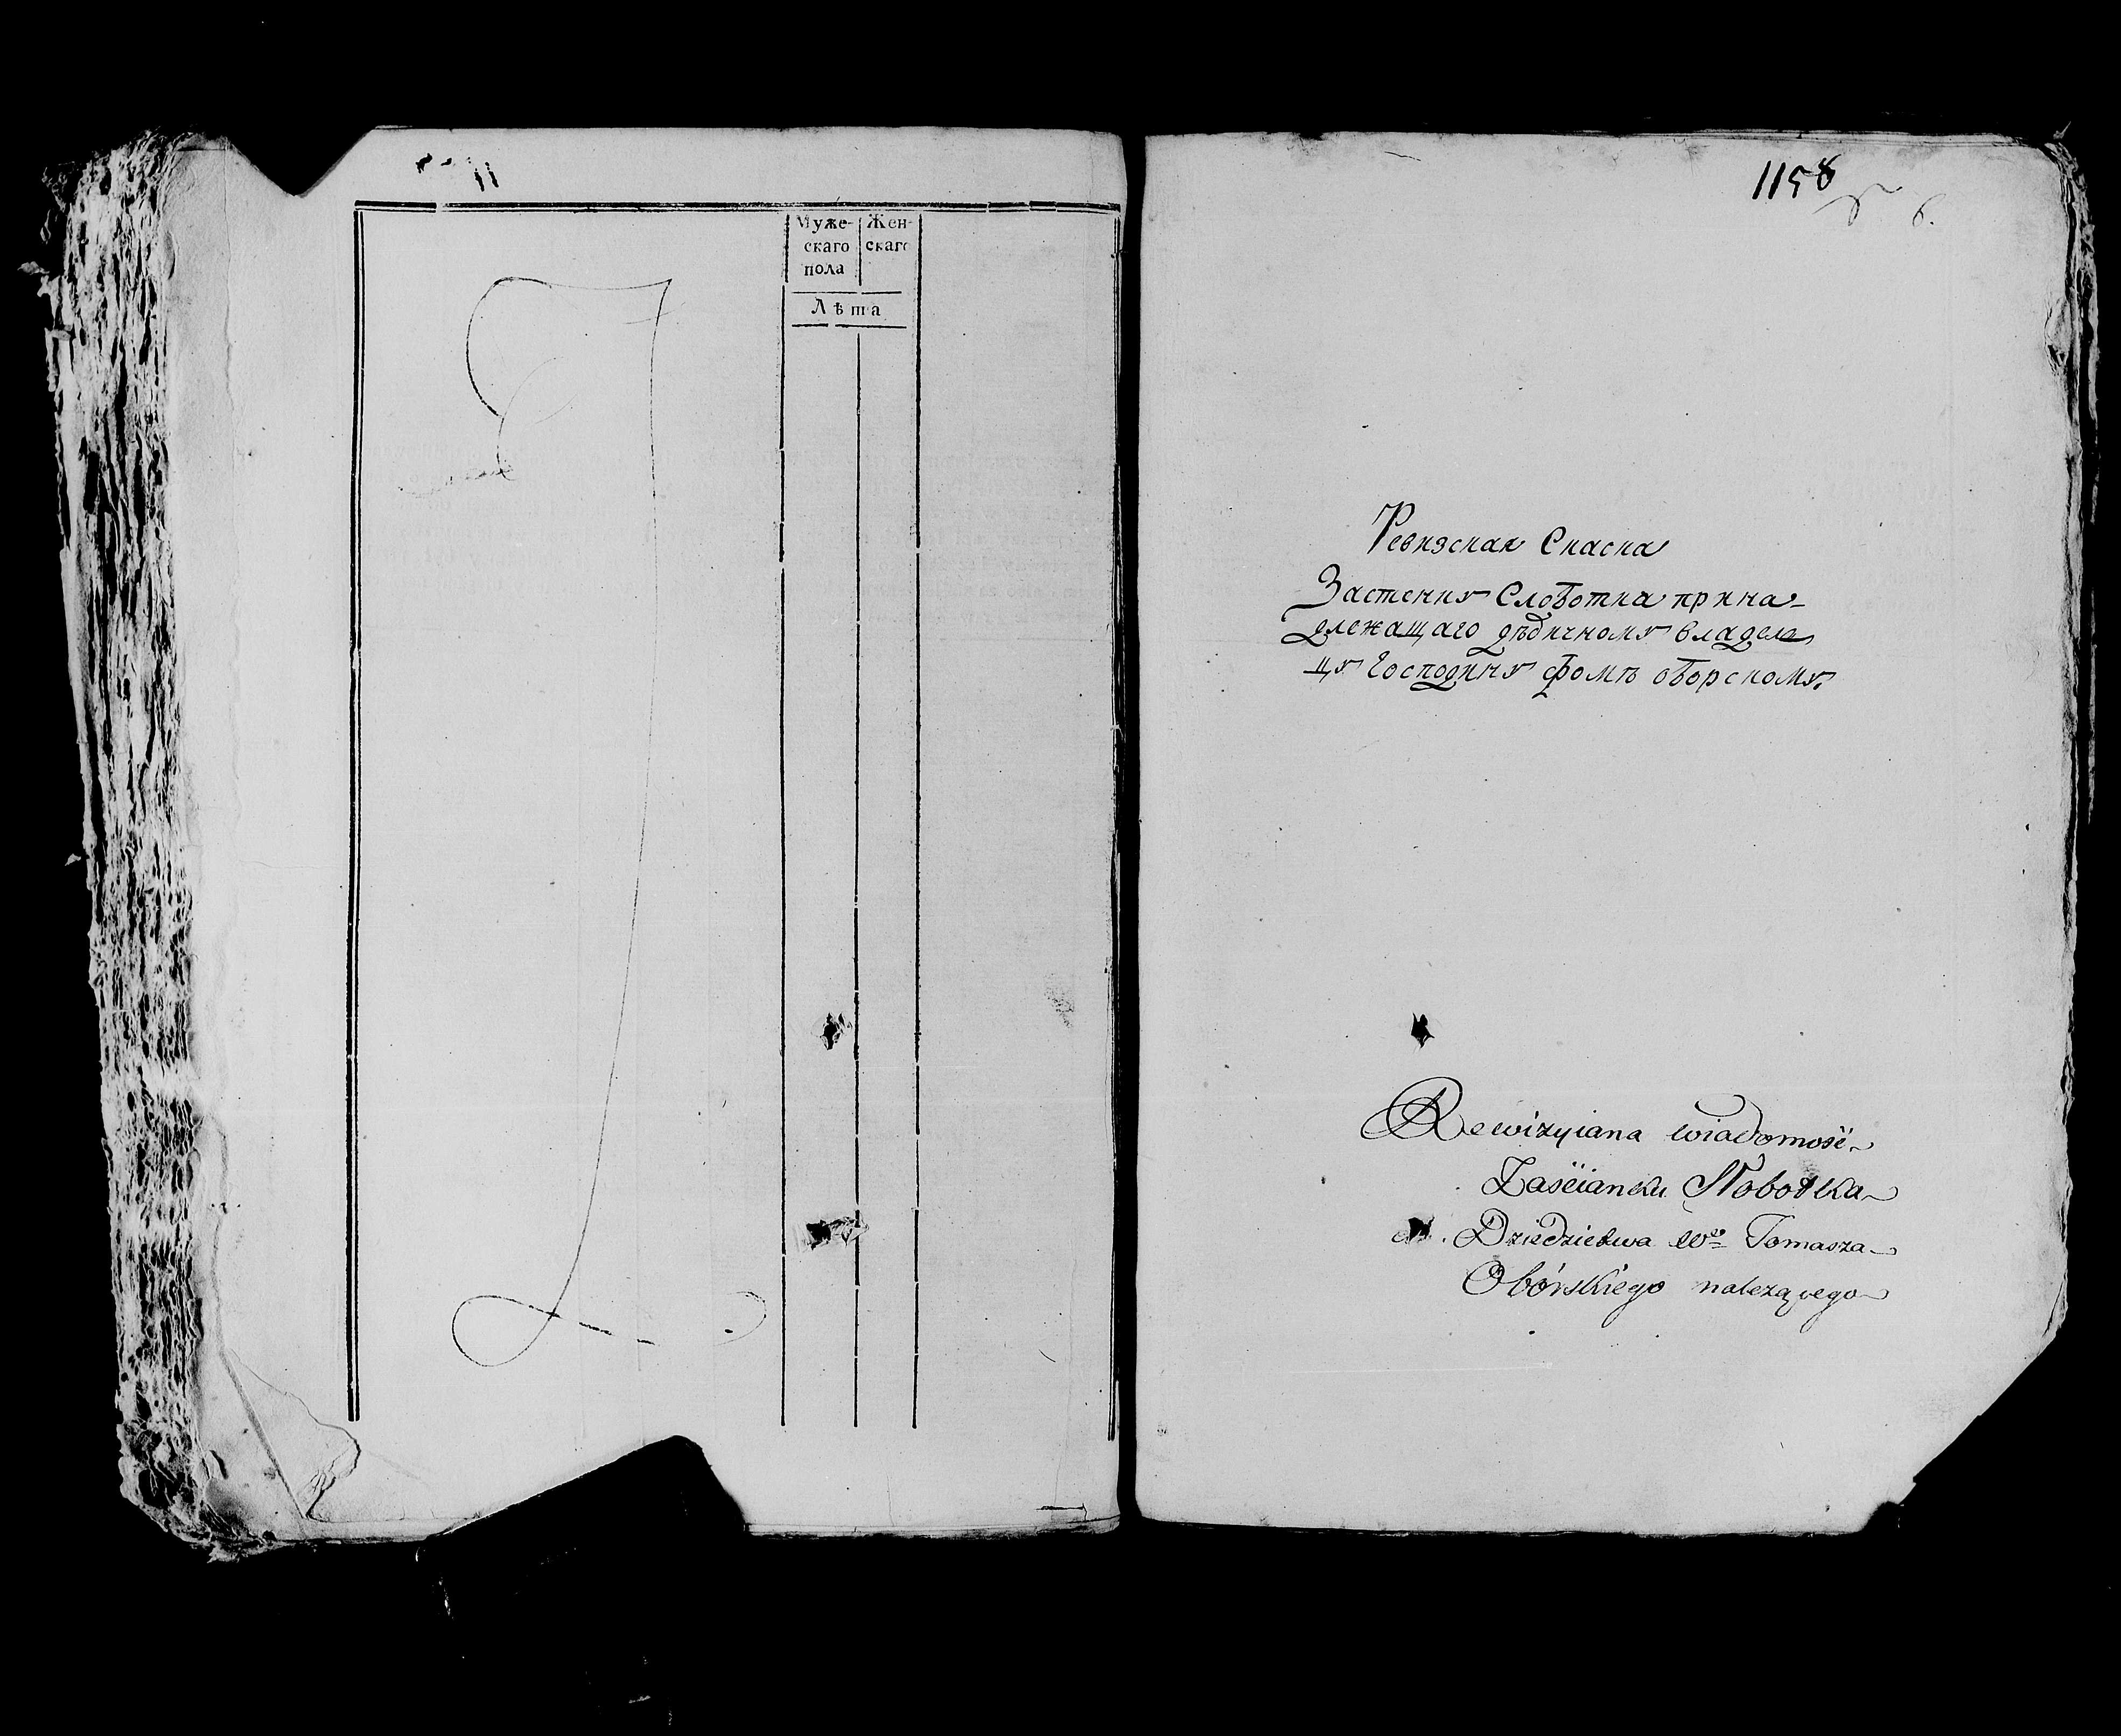 Муже-
скаго
пола
Жен-
скаго
Лѣта
1158
6.
Ревизская Скаска
Застенку Слоботка прина-
длежащаго дѣдичному владеле
цу Господину Фомѣ Оборскому.
Rewizyiana wiadomość
Zaścianku Słobotka
Dziedzictwa Wo Tomasza
Obórskiego należącego